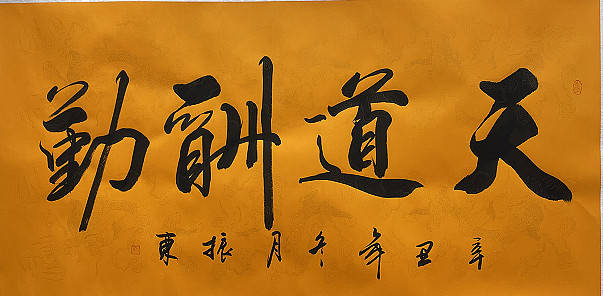 天道酬勤
辛丑年冬月振東